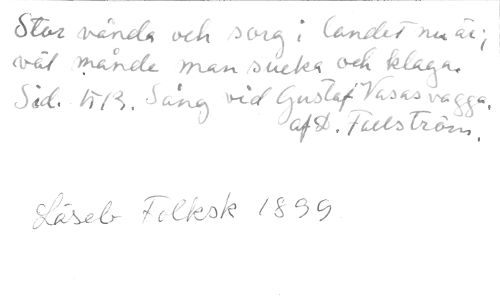 Stor vånda och sorg i landet nu är;
väl månde man sucka och klaga.
Sid. Sång vid Gustaf Vasas vagga.
af D. Fallström.
Läseb Folksk 1899